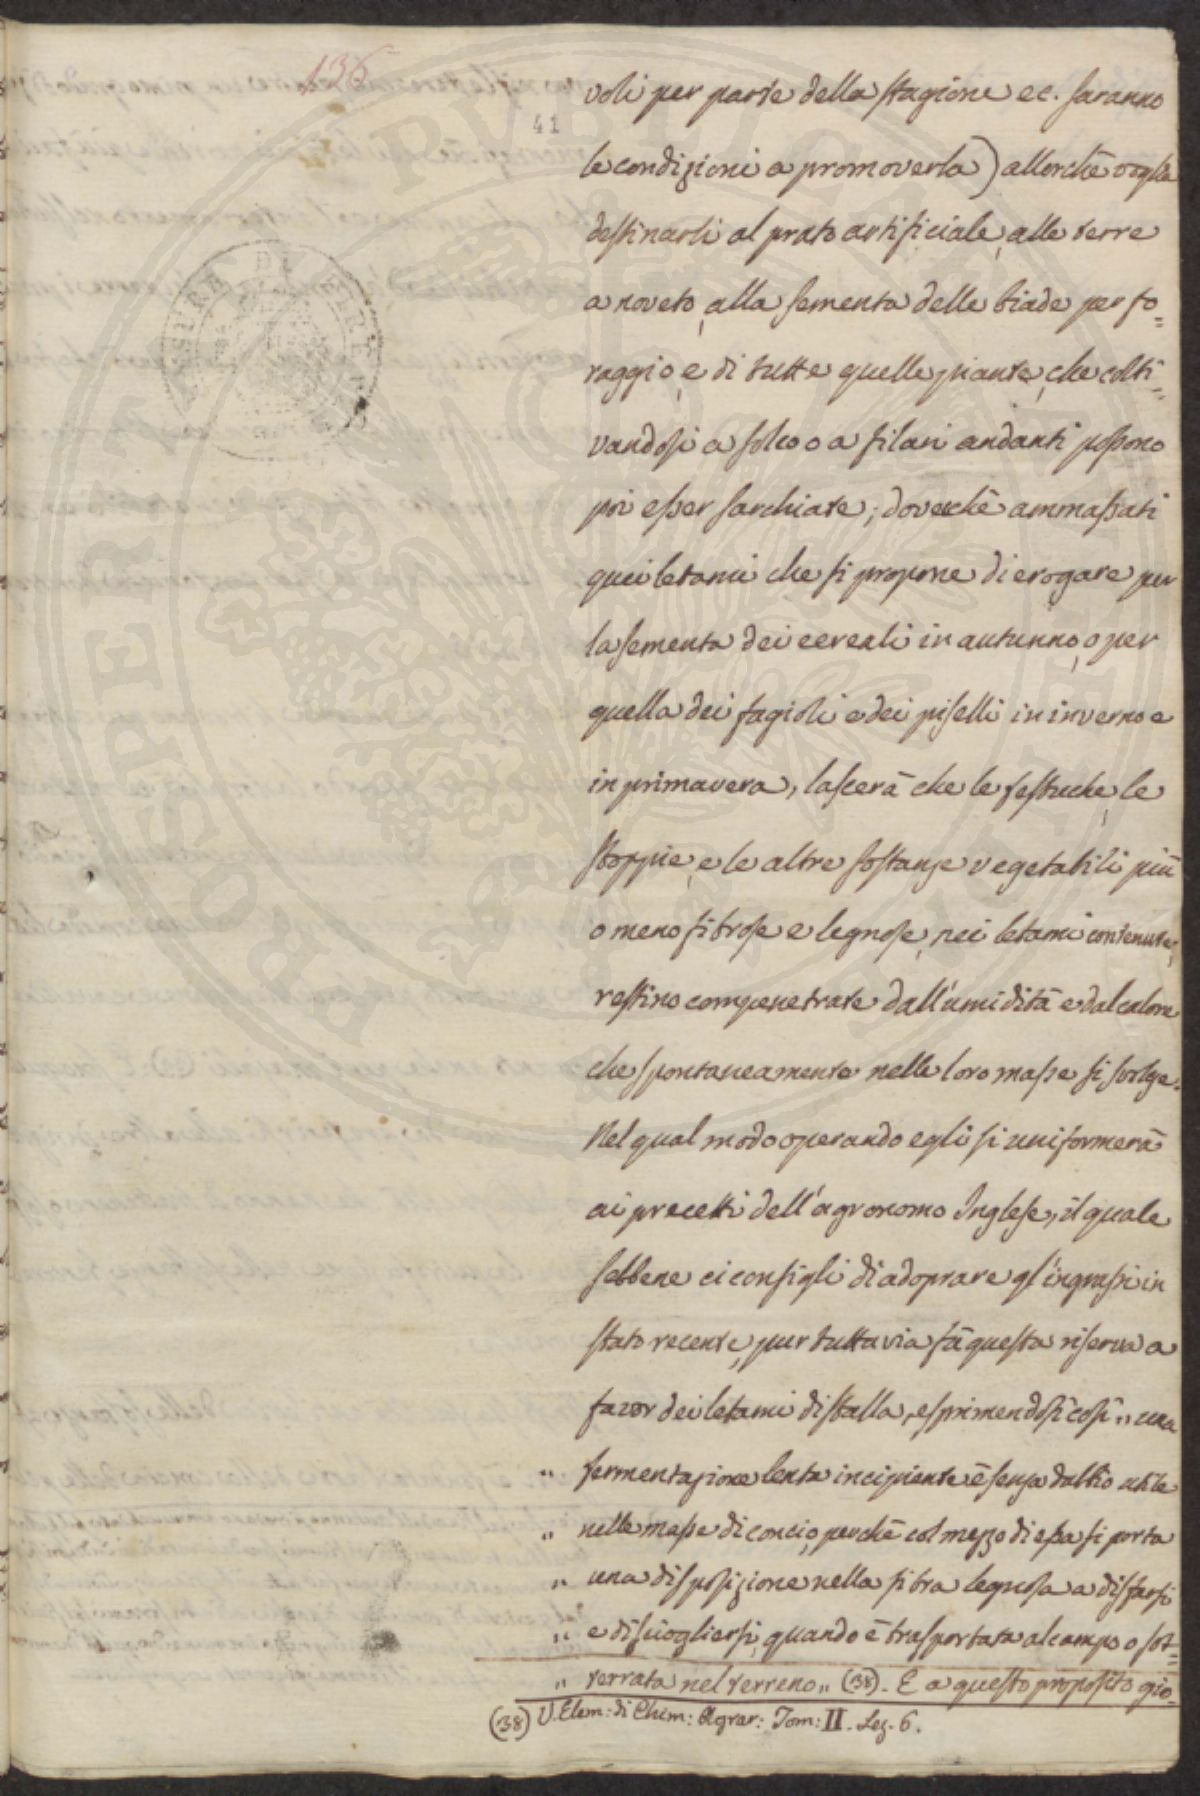 136
41
voli per parte della stagione ec. saranno
le condizioni a promoverla) allorchè voglia
destinarli al prato artificiale, alle terre
a noveto, alla sementa delle biade per fo=
raggio, e di tutte quelle piante, che colti=
vandosi a solco o a filari andanti possono
poi esser sarchiate; dovechè ammassati
quei letami che si propone di erogare per
la sementa dei cereali in autunno, o per
quella dei fagioli e dei piselli in inverno e
in primavera, lascerà che le festuche, le
stoppie, e le altre sostanze vegetabili più
o meno fibrose e legnose, nei letami contenute,
restino compenetrate dall'umidità e dal calore
che spontaneamente nelle loro masse si svolge.
Nel qual modo operando egli si uniformerà
ai precetti dell'agronomo Inglese, il quale
sebbene ci consigli di adoprare gl'ingrassi in
stato recente, pur tuttavia fà questa riserva a
favor dei letami di stalla, esprimendosi così „ una
„ fermentazione lenta incipiente è senza dubbio utile
„ nelle masse di concio, perchè col mezzo di essa si porta
„ una disposizione nella fibra legnosa a disfarsi
„ e disciogliersi, quando è trasportata al campo o sot=
„ terrata nel terreno „ (38). E a questo proposito gio=
(38) V. Elem: di Chim: Agrar: Tom: II. Lez. 6.
PROSPERITATI PUBLICAE AUGENDAE